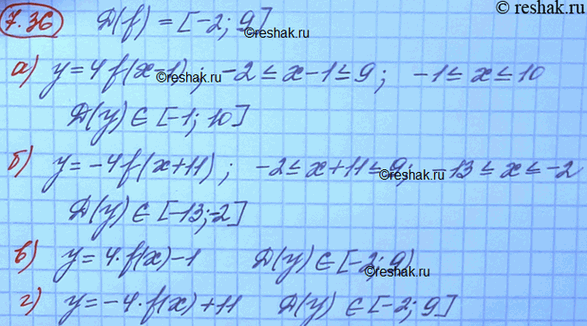 © reshak.ru
7.36 Д(f) = [-2; 9]
©reshak.ru
а) y=4f(x-1); -2≤x-1≤9; -1≤x≤10
Д(y)∈[-1; 10]
б) y=-4f(x+11); -2≤x+11≤9; -13≤x≤-2
©reshak.ru
Д(y)∈[-13;-2]
в) y=4·f(x)-1 Д(y)∈[-2; 9)
©reshak.ru
г) y=-4·f(x)+11 Д(y)∈[-2; 9]